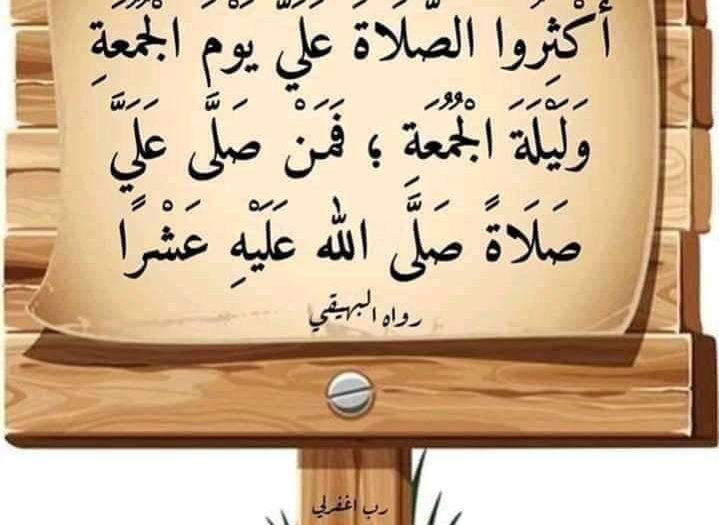 أَكْثِرُوا الصَّلَاةَ عَلَيَّ يَوْمَ الْجُمُعَةِ
وَلَيْلَةَ الْجُمُعَةِ ؛ فَمَنْ صَلَّى عَلَيَّ
صَلَاةً صَلَّى الله عَلَيْهِ عَشْرًا
رواه البهيقي
رب اغفرلي